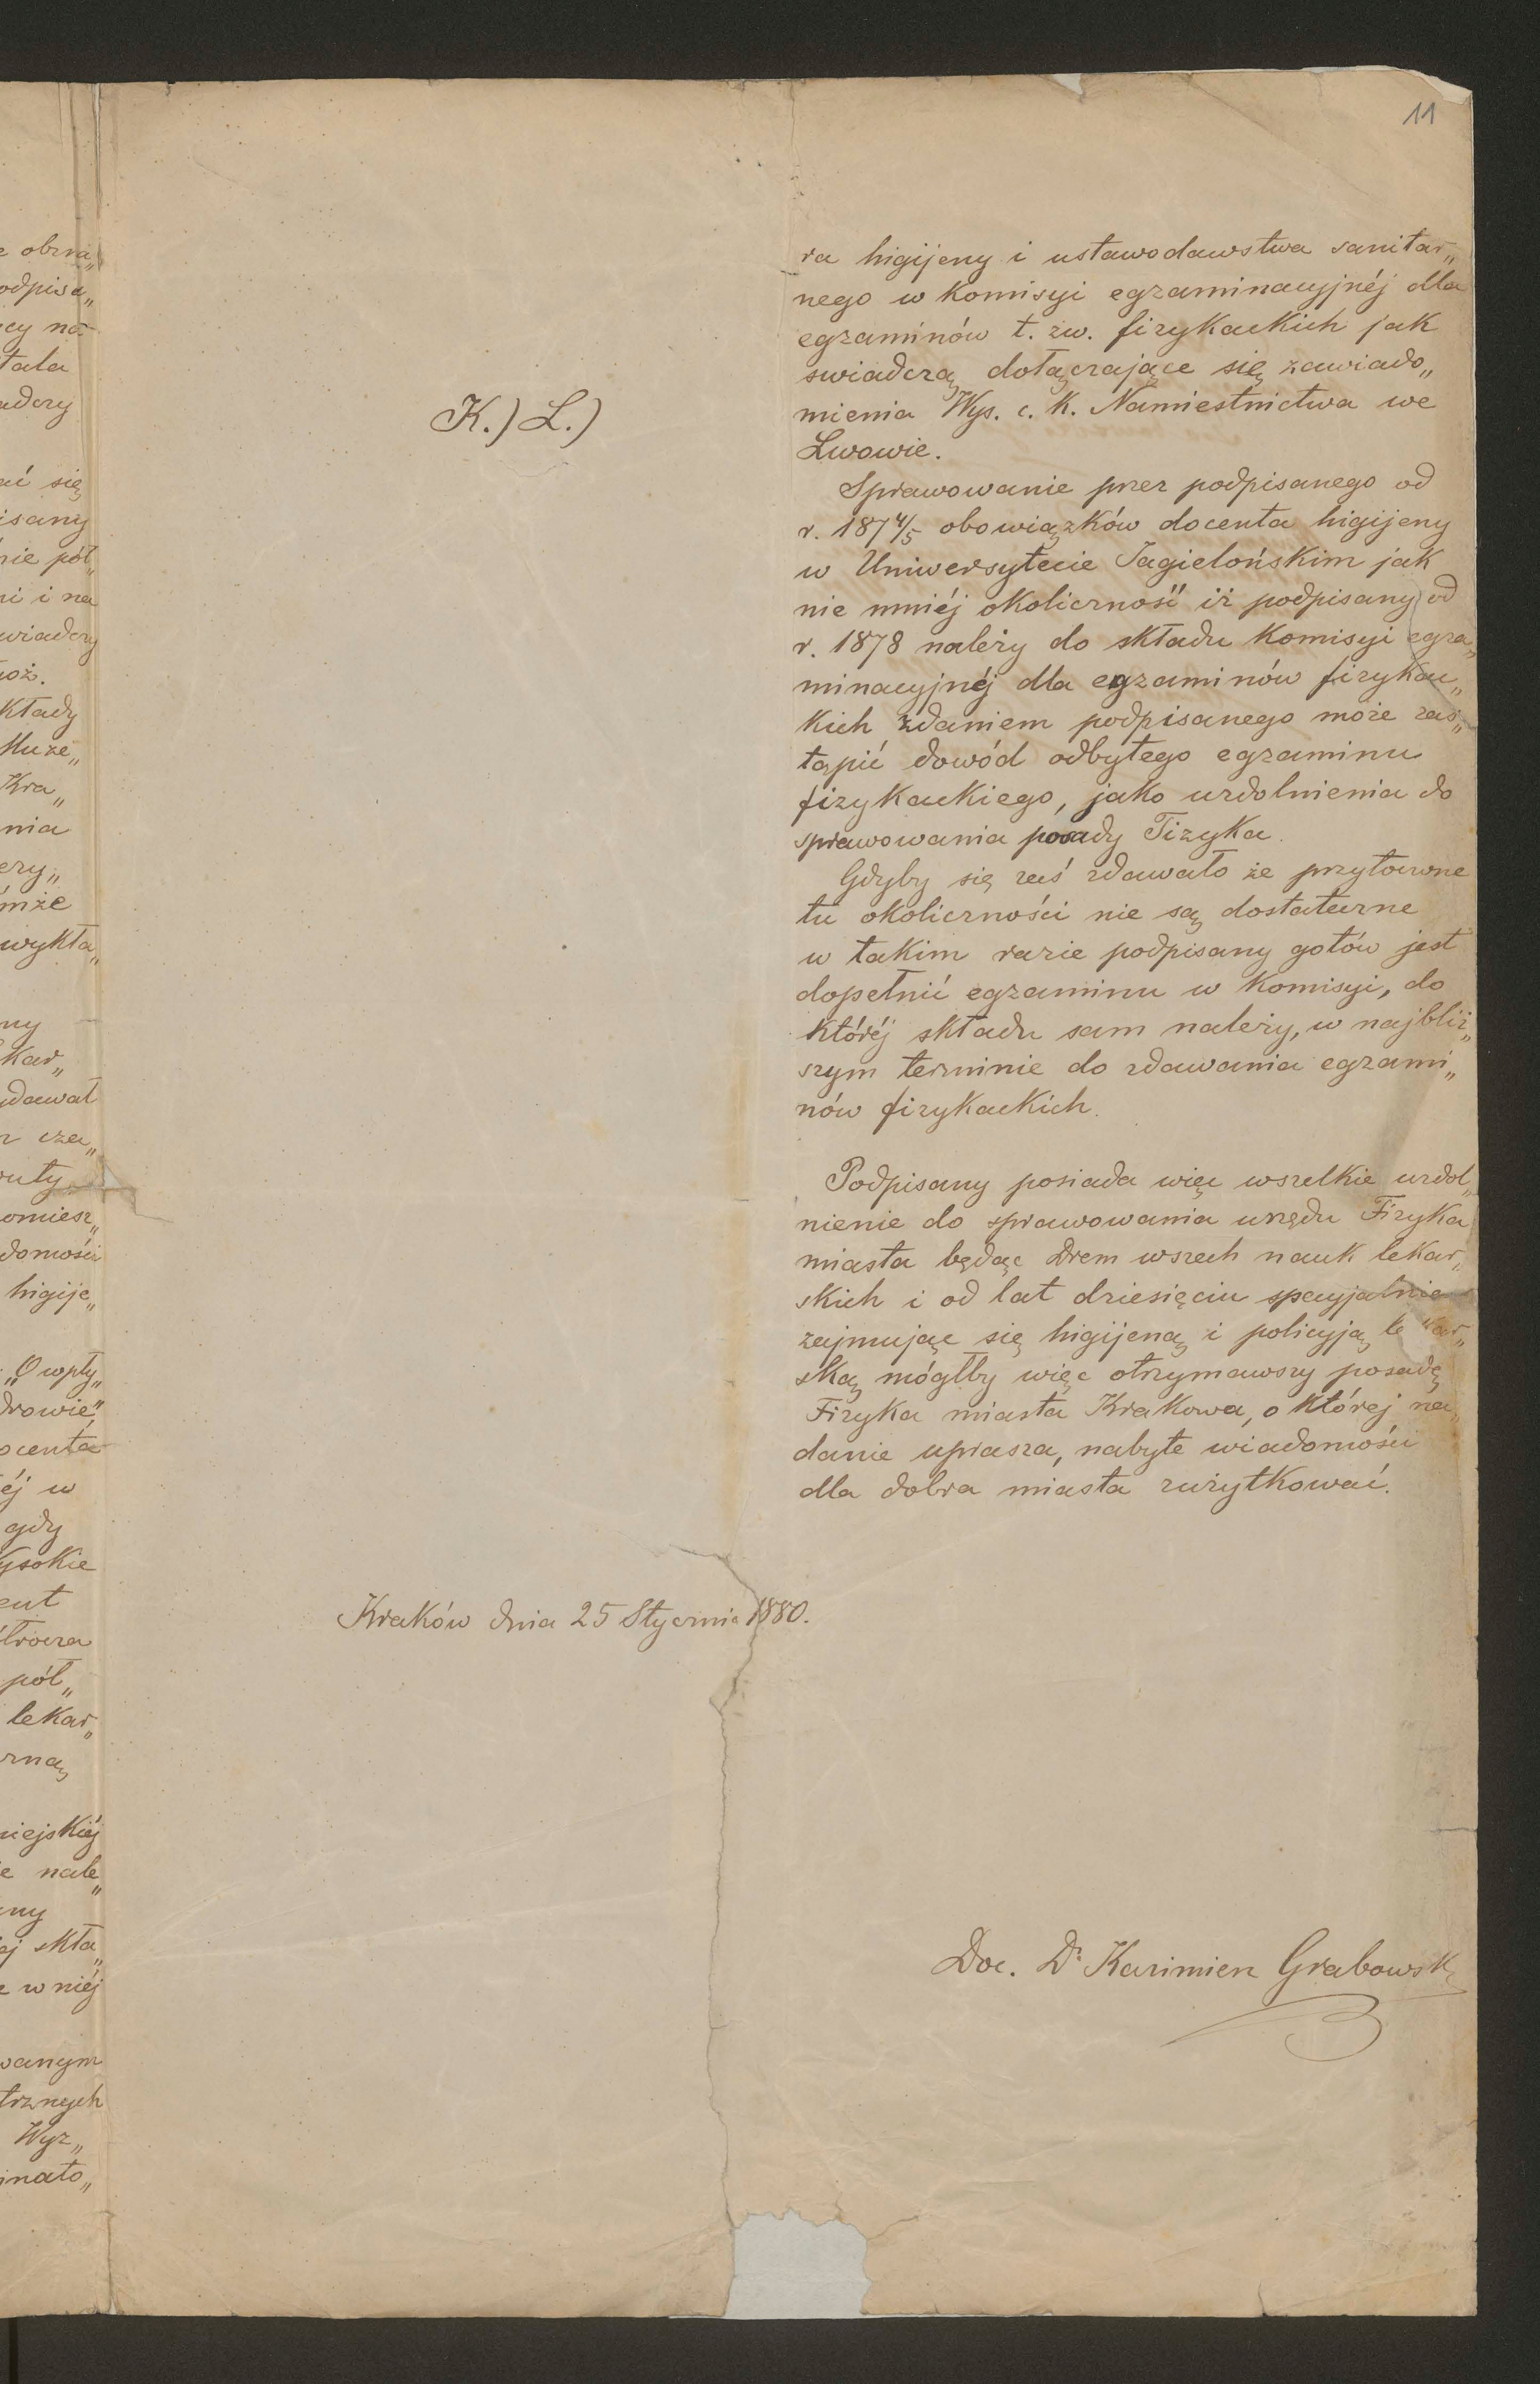 11
K.) L.)
ra higijeny i ustawodawstwa sanitar„
nego w Komisyi egzaminacyjnéj dla
egzaminów t. zw. fizykackich jak
swiadczą dołączające się zawiado„
mienia Wys. c. K. Namiestnictwa we
Lwowie.
Sprawowanie przez podpisanego od
r. 187 4/5 obowiązków docenta higijeny
w Uniwersytecie Jagielońskim jak
nie mniéj okoliczność iż podpisany od
r. 1878 należy do składu Komisyi egza„
minacyjnéj dla egzaminów fizykac„
kich zdaniem podpisanego może zas„
tąpić dowód odbytego egzaminu
fizykackiego, jako uzdolnienia do
sprawowania posady Fizyka.
Gdyby się zaś zdawało że przytoczone
tu okoliczności nie są dostateczne
w takim razie podpisany gotów jest
dopełnić egzaminu w Komisyi, do
któréj składu sam należy, w najbliż„
szym terminie do zdawania egzami„
nów fizykackich.
Podpisany posiada więc wszelkie uzdol„
nienie do sprawowania urzędu Fizyka
miasta będąc Drem wszech nauk lekar„
skich i od lat dziesięciu specyjalnie
zajmując się higijeną i policyją lekar„
ską mógłby więc otrzymawszy posadę
Fizyka miasta Krakowa, o której na„
danie uprasza, nabyte wiadomości
dla dobra miasta zużytkować.
Kraków dnia 25 Stycznia 1880.
Doc. Dr Kazimierz Grabowski